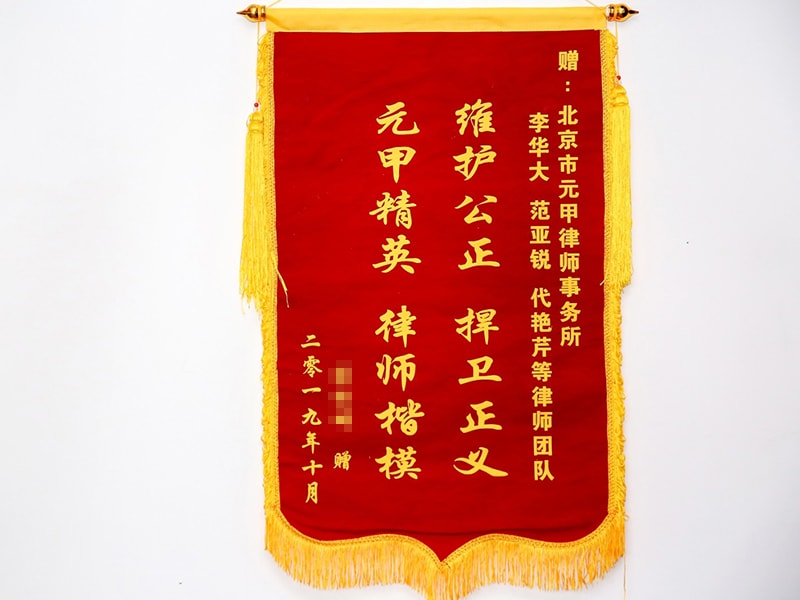 赠：北京市元甲律师事务所
李华大 范亚锐 代艳芹等律师团队
维护公正 捍卫正义
元甲精英 律师楷模
赠
二零一九年十月